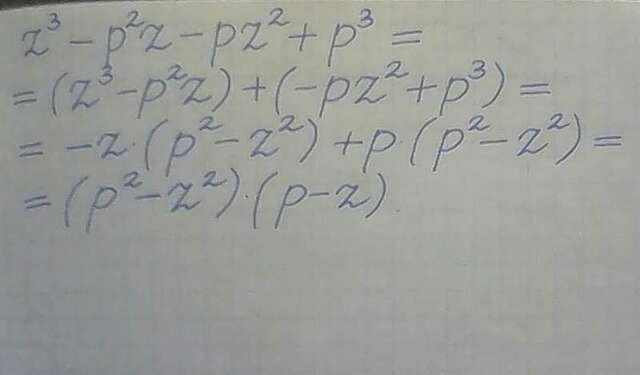 z³ − p²z − pz² + p³ =
= (z³ − p²z) + (−pz² + p³) =
= −z·(p² − z²) + p·(p² − z²) =
= (p² − z²)·(p − z)